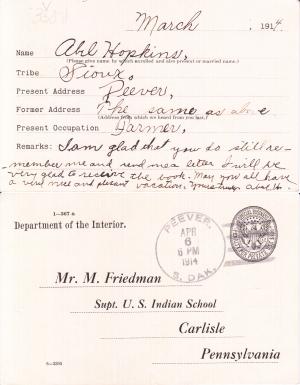 March , 1914.
Name Ahl Hopkins,
(Please give name by which enrolled and also present or married name.)
Tribe Sioux,
Present Address Peever,
Former Address The same as above
(Address at which we heard from you last.)
Present Occupation Farmer,
Remarks: I am glad that you do still re-
member me and send me a letter I will be
very glad to receive the book. May you all have
a very nice and plesant vacation. Yours truly, Ahl H.
1—567 a
Department of the Interior.
PEEVER,
APR
6
6 PM
1914
S. DAK.
Mr. M. Friedman
Supt. U. S. Indian School
Carlisle
Pennsylvania